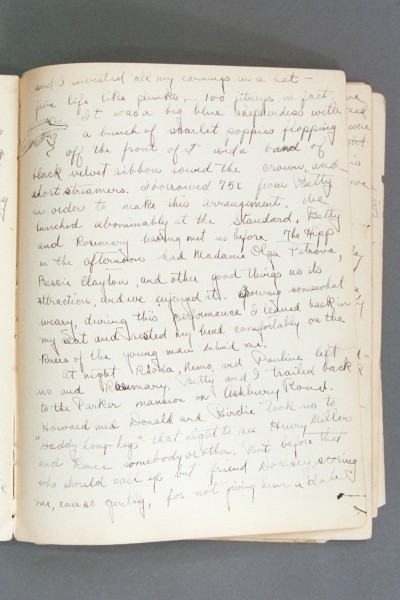 and I invested all my earnings in a hat —
life like
It was a big blue shepherdess with
a bunch of scarlet poppies flopping
off the front of it and a band of
black velvet ribbon round the crown, and
short streamers. I borrowed 75¢ from Betty
in order to make this arrangement. We
lunched abominably at the Standard, Betty
and Rosemary having met us before. The Hipp
in the afternoon had Madame Olga Petrova,
Bessie Clayton, and other good things as its
attraction, and we enjoyed it. Growing somewhat
weary, during this performance I leaned back in
my seat and rested my head comfortably on the
knees of the young man behind me.
At night Rhoda, Nemo, and Pauline left
us and Rosemary, Betty and I trailed back
to the Parker mansion on Ashbury Road.
Howard and Donald and Birdie took us to
"Daddy Long-legs" that night to see Henry Miller
and Renee somebody or other. But before that
who should call up but friend Dorsey, scoring
me, cause gently, for not giving him a date